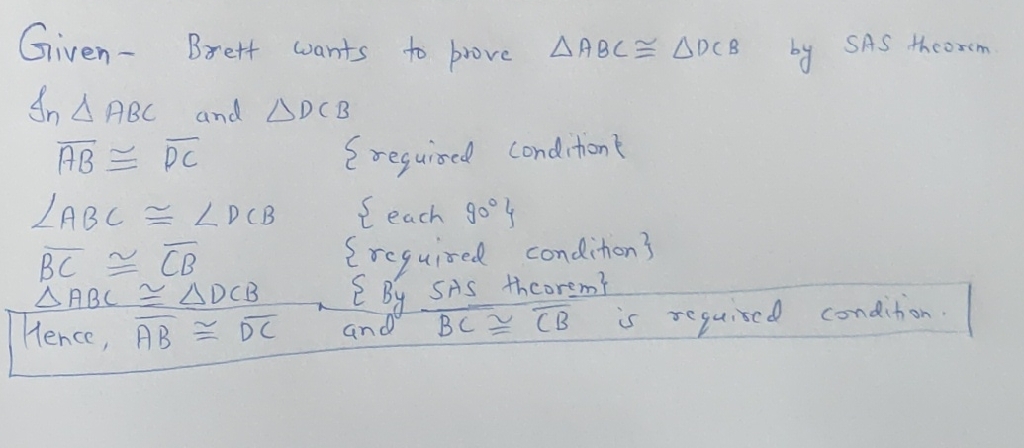 Given - Brett wants to prove △ABC ≅ △DCB by SAS theorem.
In △ ABC and △DCB
A̅B̅ ≅ D̅C̅ {required condition}
∠ABC ≅ ∠DCB {each 90°}
B̅C̅ ≅ C̅B̅ {required condition}
△ABC ≅ △DCB {By SAS theorem}
Hence, A̅B̅ ≅ D̅C̅ and B̅C̅ ≅ C̅B̅ is required condition.